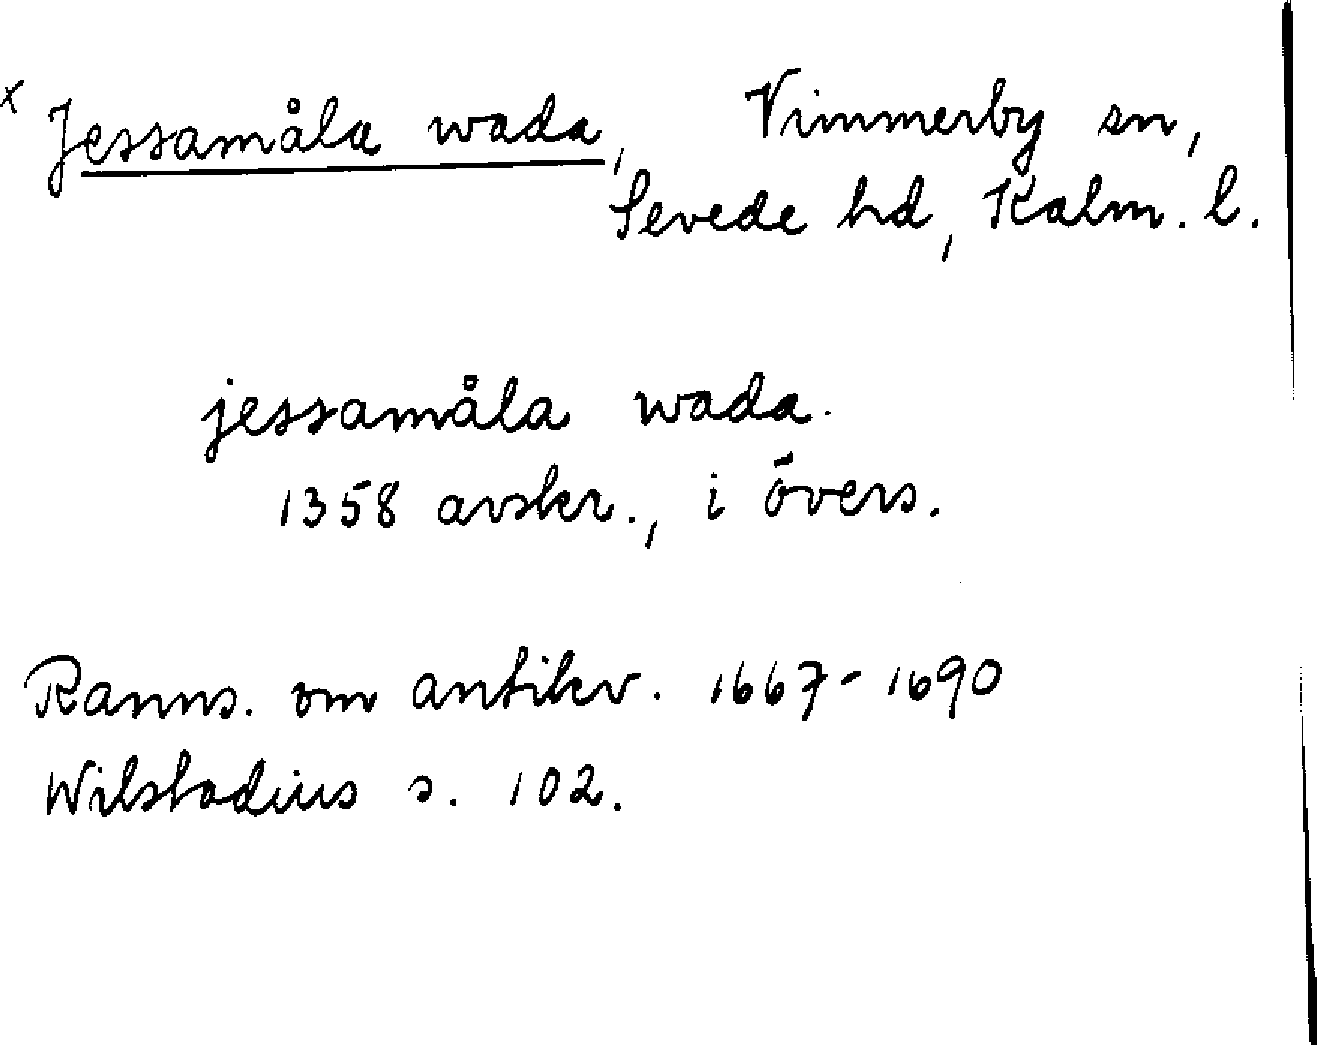 x Jessamåla wada, Vimmerby sn,
Sevede hd, Kalm. l.
jessamåla wada.
1358 avskr., i övers.
Ranns. om antikv. 1667-1690
Wilstadius s. 102.